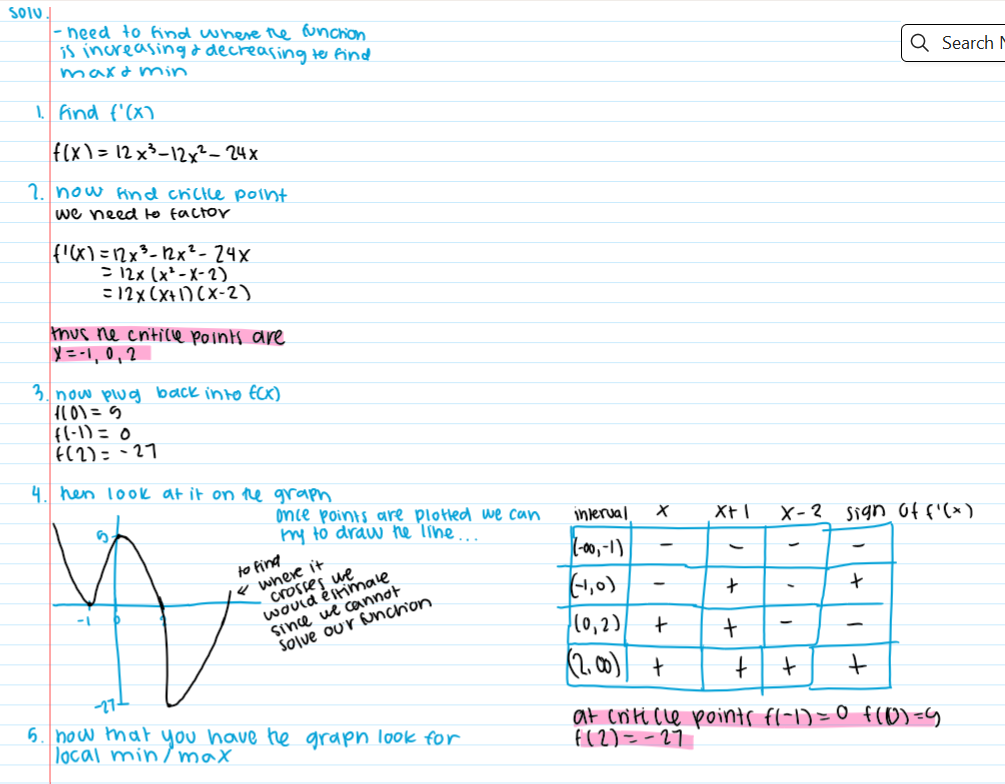 Solu.
- need to find where the function
is increasing & decreasing to find
max & min
Search N
1. find f'(x)
f(x) = 12x³-12x²-24x
2. now find criticle point
we need to factor
f'(x) = 12x³-12x²-24x
= 12x(x²-x-2)
= 12x(x+1)(x-2)
thus the criticle points are
x = -1, 0, 2
3. now plug back into f(x)
f(0) = 5
f(-1) = 0
f(2) = -27
4. then look at it on the graph
once points are plotted we can
try to draw the line...
5
-1 0
-27
to find
where it
crosses we
would estimate
since we cannot
solve our function
interval x x+1 x-2 sign of f'(x)
(-∞,-1) - - - -
(-1,0) - + - +
(0,2) + + - -
(2,∞) + + + +
at criticle points f(-1)=0 f(0)=5
f(2) = -27
5. now that you have the graph look for
local min/max